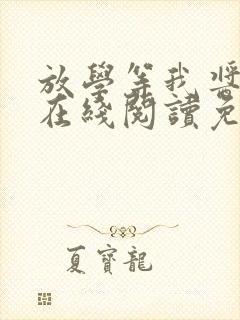 放學等我 醬
在綫閱讀免
夏寶龍